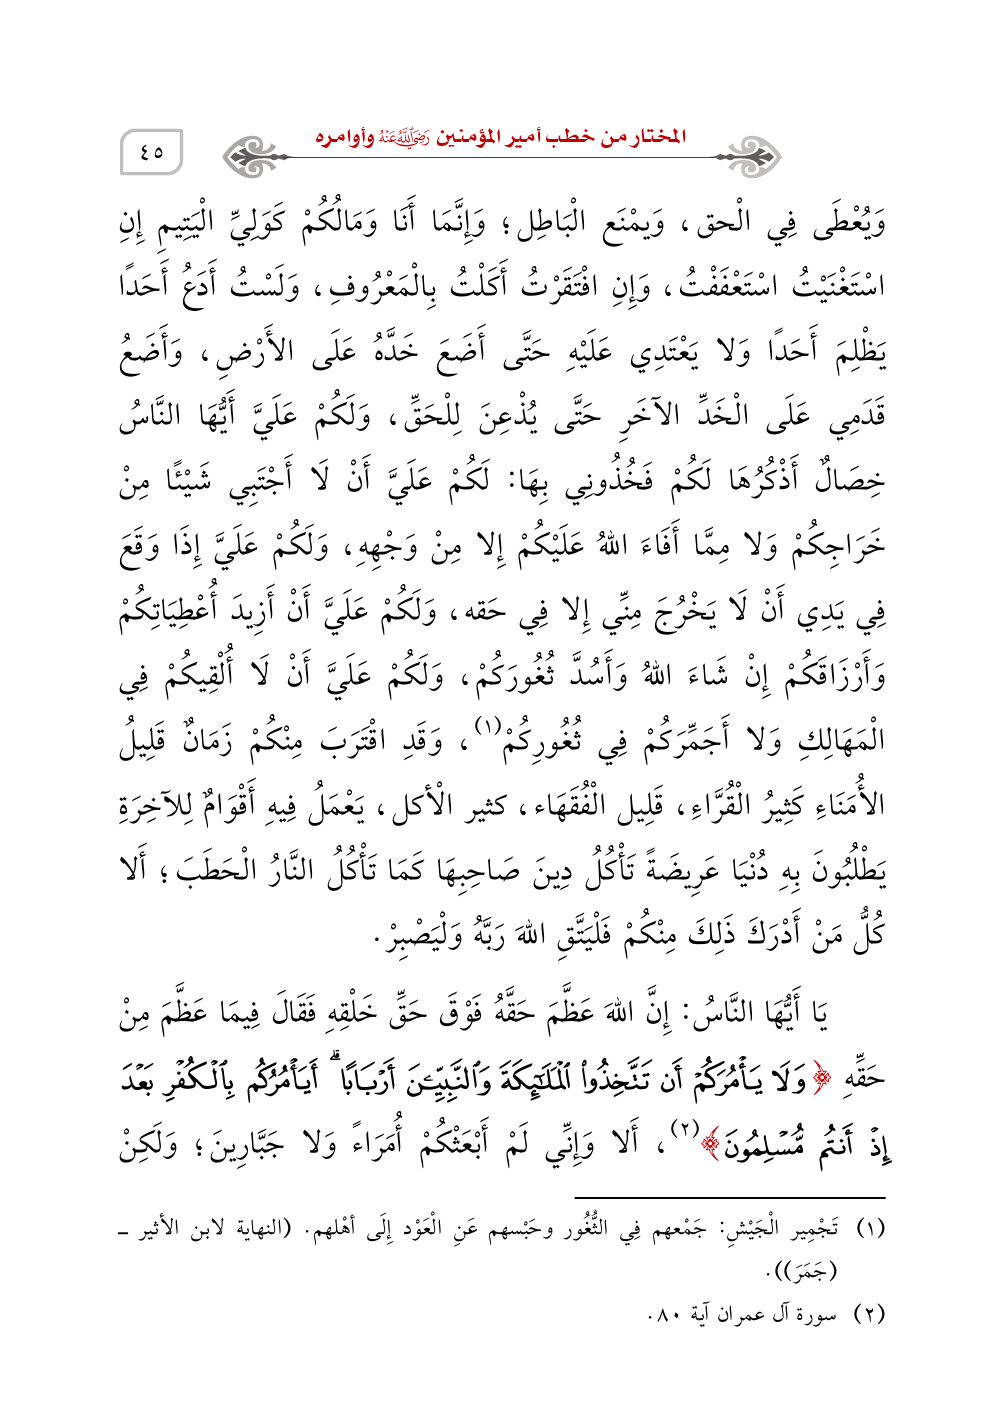 المختار من خطب أمير المؤمنين رضي الله عنه وأوامره
٤٥
وَيُعْطَى فِي الْحق، وَيمْنَع الْبَاطِل؛ وَإِنَّمَا أَنَا وَمَالُكُمْ كَوَلِيِّ الْيَتِيمِ إِنِ
اسْتَغْنَيْتُ اسْتَعْفَفْتُ، وَإِنِ افْتَقَرْتُ أَكَلْتُ بِالْمَعْرُوفِ، وَلَسْتُ أَدَعُ أَحَدًا
يَظْلِمَ أَحَدًا وَلا يَعْتَدِي عَلَيْهِ حَتَّى أَضَعَ خَدَّهُ عَلَى الأَرْضِ، وَأَضَعُ
قَدَمِي عَلَى الْخَدِّ الآخَرِ حَتَّى يُذْعِنَ لِلْحَقِّ، وَلَكُمْ عَلَيَّ أَيُّهَا النَّاسُ
خِصَالٌ أَذْكُرُهَا لَكُمْ فَخُذُونِي بِهَا: لَكُمْ عَلَيَّ أَنْ لَا أَجْتَبِي شَيْئًا مِنْ
خَرَاجِكُمْ وَلا مِمَّا أَفَاءَ اللهُ عَلَيْكُمْ إِلا مِنْ وَجْهِهِ، وَلَكُمْ عَلَيَّ إِذَا وَقَعَ
فِي يَدِي أَنْ لَا يَخْرُجَ مِنِّي إِلا فِي حَقه، وَلَكُمْ عَلَيَّ أَنْ أَزِيدَ أُعْطِيَاتِكُمْ
وَأَرْزَاقَكُمْ إِنْ شَاءَ اللهُ وَأَسُدَّ ثُغُورَكُمْ، وَلَكُمْ عَلَيَّ أَنْ لَا أُلْقِيكُمْ فِي
الْمَهَالِكِ وَلا أَجَمِّرَكُمْ فِي ثُغُورِكُمْ(١)، وَقَدِ اقْتَرَبَ مِنْكُمْ زَمَانٌ قَلِيلُ
الأُمَنَاءِ كَثِيرُ الْقُرَّاءِ، قَلِيل الْفُقَهَاء، كثير الْأكل، يَعْمَلُ فِيهِ أَقْوَامٌ لِلآخِرَةِ
يَطْلُبُونَ بِهِ دُنْيَا عَرِيضَةً تَأْكُلُ دِينَ صَاحِبِهَا كَمَا تَأْكُلُ النَّارُ الْحَطَبَ؛ أَلا
كُلُّ مَنْ أَدْرَكَ ذَلِكَ مِنْكُمْ فَلْيَتَّقِ اللهَ رَبَّهُ وَلْيَصْبِرْ.
يَا أَيُّهَا النَّاسُ: إِنَّ اللهَ عَظَّمَ حَقَّهُ فَوْقَ حَقِّ خَلْقِهِ فَقَالَ فِيمَا عَظَّمَ مِنْ
حَقِّهِ ﴿وَلَا يَأۡمُرَكُمۡ أَن تَتَّخِذُواْ ٱلۡمَلَٰٓئِكَةَ وَٱلنَّبِيِّـۧنَ أَرۡبَابًاۗ أَيَأۡمُرُكُم بِٱلۡكُفۡرِ بَعۡدَ
إِذۡ أَنتُم مُّسۡلِمُونَ﴾(٢)، أَلا وَإِنِّي لَمْ أَبْعَثْكُمْ أُمَرَاءً وَلا جَبَّارِينَ؛ وَلَكِنْ
(١) تَجْمِير الْجَيْشِ: جَمْعهم فِي الثُّغُور وحَبْسهم عَنِ الْعَوْد إِلَى أهْلهم. (النهاية لابن الأثير ـ
(جَمَرَ)).
(٢) سورة آل عمران آية ٨٠.